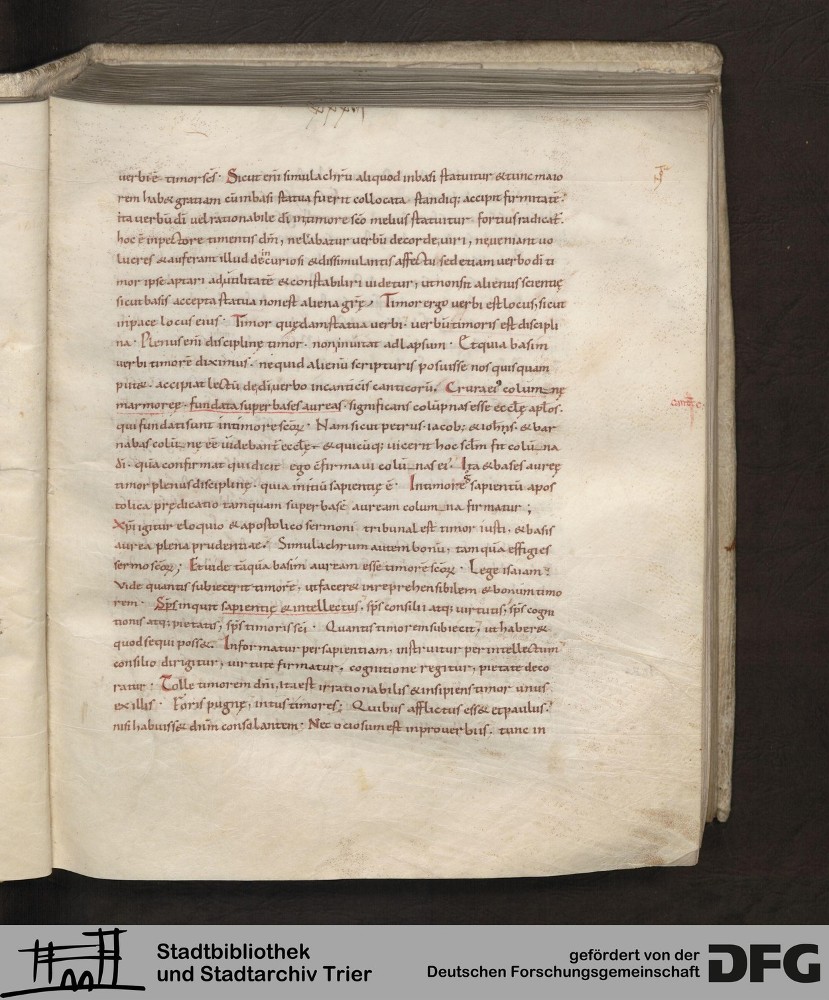 verbi ẽ timor scs̄. Sicut eni simulachrū aliquod inbasi statuitur & tunc maio
rem hab& gratiam cū inbasi statua fuerit collocata standiq; accipit firmitatē.
ita verbū dī vel rationabile dī intimore scō melius statuitur fortius radicat̄.
hoc ē inpectore timentis dm̄, ne labatur verbū decorde viri, ne veniant vo
lucres & auferant illud de incuriosi & dissimulantis affectu sed etiam verbo dī ti
mor ipse aptari ad utilitatē & constabiliri videtur, ut non sit alienus scientię
sicut basis accepta statua non est aliena grę, Timor ergo verbi est locus, sicut
inpace locus eius. Timor quędam statua verbi. verbū timoris est discipli
na. Plenus eni disciplinę timor. non inuitat adlapsum. Et quia basim
verbi timorē diximus. ne quid alienū scripturis posuisse nos quisquam
put&. accipiat lectū de dī verbo incanticis canticorū. Crura ei' columnę
marmoreę. fundata super bases aureas. significans colūpnas esse eccłę apłos.
qui fundati sunt intimore scōꝝ. Nam sicut petrus. iacob; & iohīs. & bar
nabas colūnę eē videbant̄ eccłę & quicūq; vicerit hoc scłm fit colūna
dī. quā confirmat qui dicit ego cōfirmavi colūnas ei'. Ita & bases aureę
timor plenus disciplinę. quia initiū sapientię ē. Intimore sapientū apos
tolica prędicatio tamquam super basē auream columna firmatur;
Xpī igitur eloquio & apostolico sermoni tribunal est timor iusti. & basis
aurea plena prudentiae. Simulachrum autem bonū, tamquā effigies
sermo scōꝝ; Et vide tāquā basim auream esse timorē scōꝝ. Lege isaiam.
Vide quantis subiecerit timorē, ut facer& inreprehensibilem & bonum timo
rem. Sps̄ inquit sapientię & intellectus. sps̄ consilii atq; virtutis, sps̄ cogni
tionis atq; pietatis, sps̄ timoris scī. Quantis timorem subiecit, ut haber&
quod sequi poss&. Informatur per sapientiam, instruitur per intellectum
consilio dirigitur, virtute firmatur, cognitione regitur, pietate deco
ratur. Tolle timorem dni, ita est irrationabilis & insipiens timor unus
ex illis. Foris pugnę, intus timores; Quibus afflictus ess& et paulus.
nisi habuiss& dnm̄ consolantem. Nec ociosum est inproverbiis. tunc in
Stadtbibliothek
und Stadtarchiv Trier
gefördert von der
Deutschen Forschungsgemeinschaft
DFG